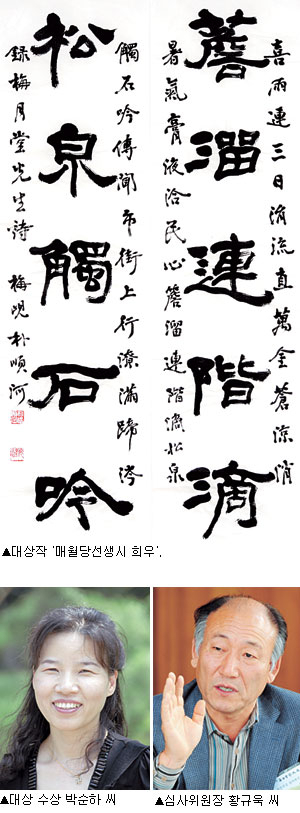 喜雨連三日涓流直萬金蒼涼消
簷溜連階滴
暑氣膏液洽民心簷溜連階滴松泉
觸石吟傳聞市街上行潦滿蹄涔
松泉觸石吟
錄梅月堂先生詩 梅峴朴順河
▲대상작 '매월당선생시 희우'.
▲대상 수상 박순하 씨
▲심사위원장 황규욱 씨